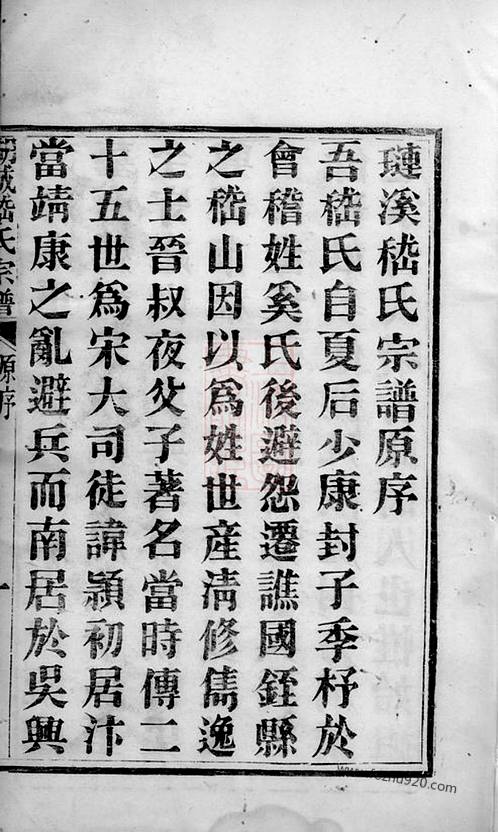 璉溪嵇氏宗譜原序
吾嵇氏自夏后少康封子季杼於
會稽姓奚氏後避怨遷譙國銍縣
之嵇山因以爲姓世產淸修儁逸
之士晉叔夜父子著名當時傳二
十五世爲宋大司徒諱潁初居汴
當靖康之亂避兵而南居於吳興
嵇氏宗譜
原序
一